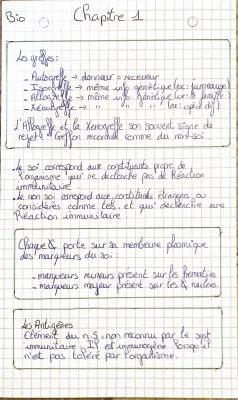 Bio
Chapitre 1
Les greffes :
- Autogreffe → donneur = receveur
- Isogreffe → même info génétique (ex: jumeaux)
- Allogreffe → même info génétique
- Xénogreffe →
L'Allogreffe et la Xénogreffe son souvent signe de
rejet reconnu comme du non-soi.
Le soi correspond aux constituants propre de
l'organisme qui ne déclenche pas de Réaction
immunitaire.
Le non soi correspond aux constituants étrangers ou
considérés comme tels, et qui déclenche une
Réaction immunitaire.
Chaque porte sur sa membrane plasmique
des marqueurs du soi :
- marqueurs mineurs présent sur les hématies
- marqueurs majeur présent sur les
Les Antigènes
Elément du n.s, non reconnu par le syst
immunitaire. Il est immunogène lorsqu'il
n'est pas toléré par l'organisme.